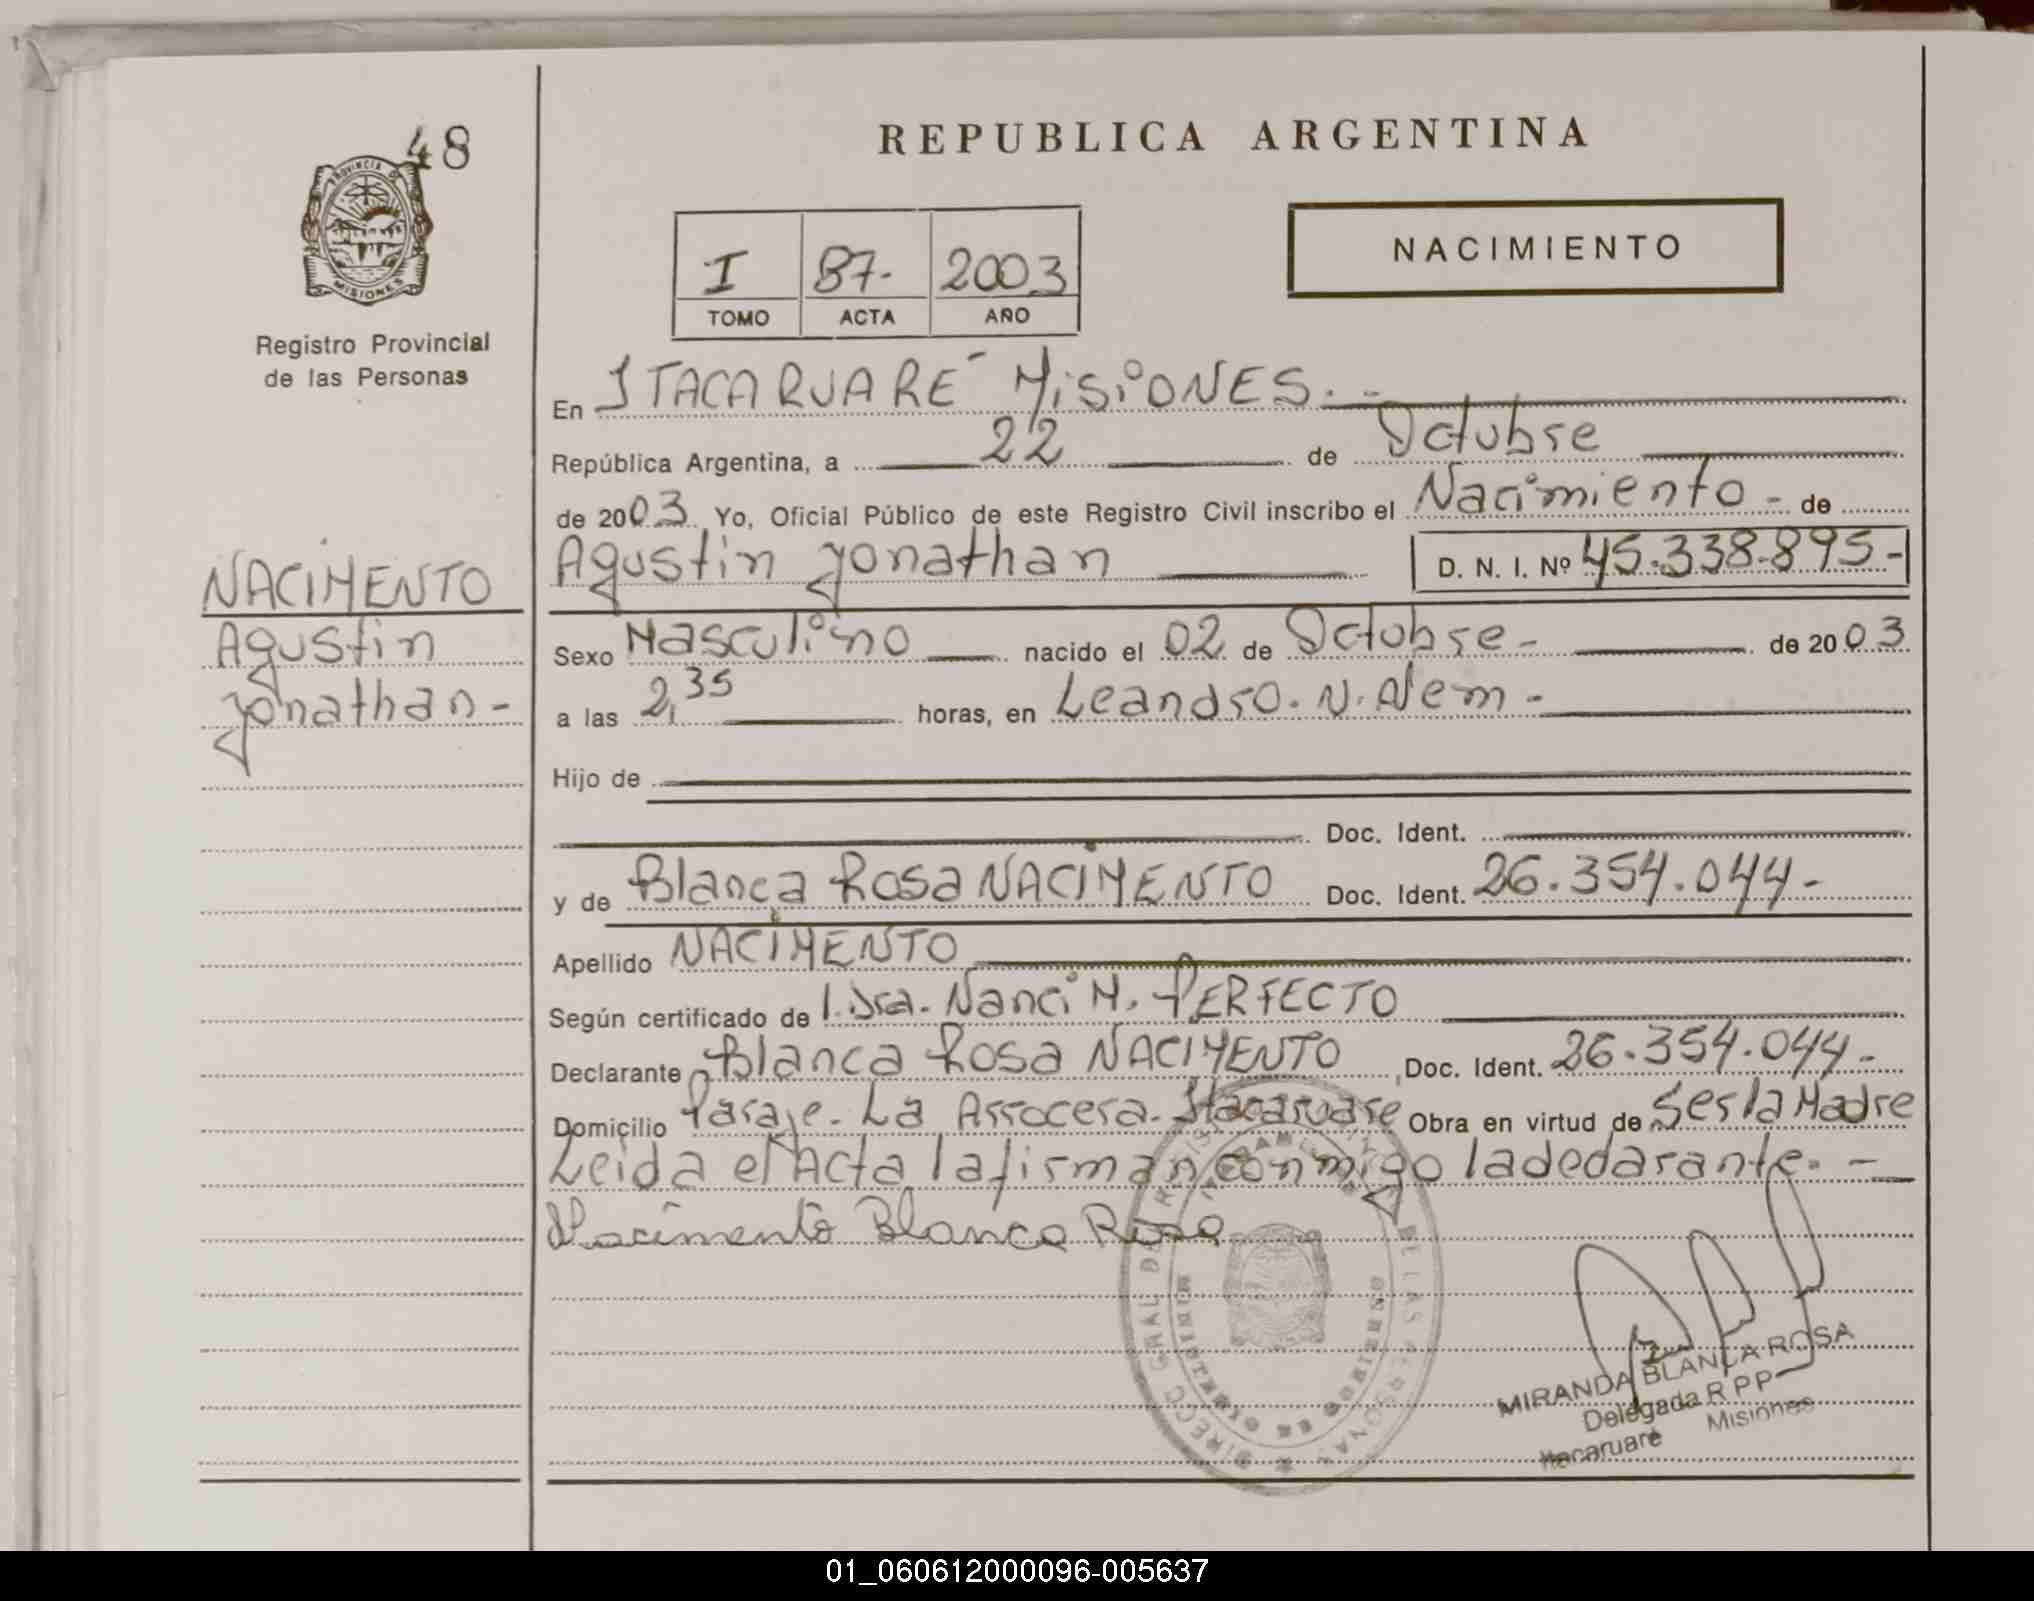 48
PROVINCIA DE
MISIONES
Registro Provincial
de las Personas
REPUBLICA ARGENTINA
NACIMIENTO
I 87- 2003
TOMO ACTA AÑO
En ITACARUARE MISIONES.-
República Argentina, a 22 de Octubre
de 2003 Yo, Oficial Público de este Registro Civil inscribo el Nacimiento - de
Agustin Jonathan D. N. I. Nº 45.338.895-
NACIMENTO
Agustin
Jonathan-
Sexo Masculino nacido el 02 de Octubre- de 2003
a las 2,35 horas, en Leandro. N. Alem -
Hijo de
Doc. Ident.
y de Blanca Rosa NACIMENTO Doc. Ident. 26.354.044-
Apellido NACIMENTO
Según certificado de l. Dra. Nanci M. PERFECTO
Declarante Blanca Rosa NACIMENTO, Doc. Ident. 26.354.044-
Domicilio Paraje. La Arrocera. Itacaruare Obra en virtud de Ser la Madre
Leida el Acta la firman conmigo la declarante. -
Nacimento Blanca Rosa
MIRANDA BLANCA ROSA
Delegada R P P
Itacaruaré Misiones
01_060612000096-005637